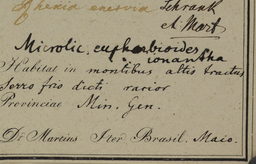 Schrank
et Mart
Microlic. euphorbioides
ionantha
Habitat in montibus altis tractus
Serro frio dicti rarior
Provinciae Min. Gen.
Dr Martius Iter Brasil. Maio.